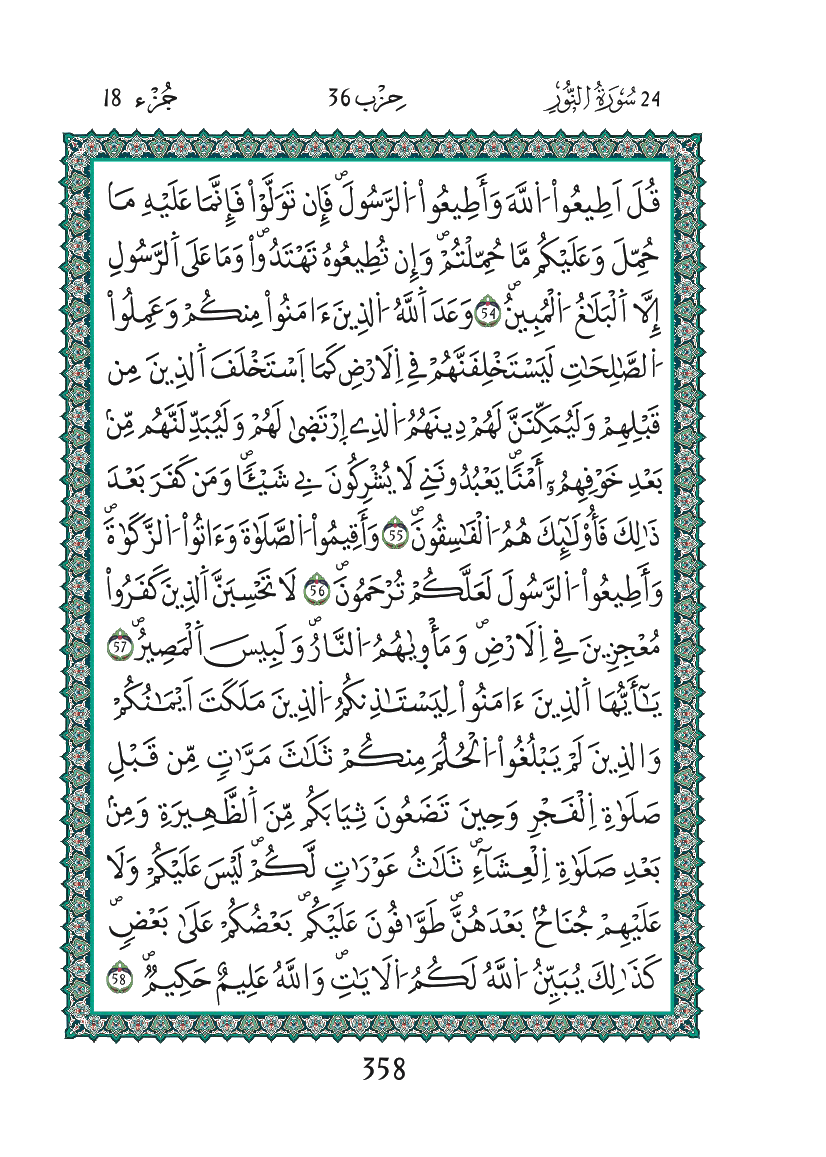 24 سُورَةُ النُّورِ حِزْب 36 جُزْء 18
قُلَ اَطِيعُواْ اُللَّهَ وَأَطِيعُواْ اُلرَّسُولَۖ فَإِن تَوَلَّوْاْ فَإِنَّمَا عَلَيْهِ مَا
حُمِّلَ وَعَلَيْكُم مَّا حُمِّلْتُمْۖ وَإِن تُطِيعُوهُ تَهْتَدُواْۖ وَمَا عَلَى اَلرَّسُولِ
إِلَّا اَلْبَلَاغُ اُلْمُبِينُۖ 54 وَعَدَ اَللَّهُ اُلذِينَ ءَامَنُواْ مِنكُمْ وَعَمِلُواْ
اُلصَّٰلِحَٰتِ لَيَسْتَخْلِفَنَّهُمْ فِے اِلَارْضِ كَمَا اَسْتَخْلَفَ اَلذِينَ مِن
قَبْلِهِمْ وَلَيُمَكِّنَنَّ لَهُمْ دِينَهُمُ اُلذِے اِرْتَضىٰ لَهُمْ وَلَيُبَدِّلَنَّهُم مِّنۢ
بَعْدِ خَوْفِهِمُۥٓ أَمْناٗۖ يَعْبُدُونَنِے لَا يُشْرِكُونَ بِے شَيْـٔاٗۖ وَمَن كَفَرَ بَعْدَ
ذَٰلِكَ فَأُوْلَٰٓئِكَ هُمُ اُلْفَٰسِقُونَۖ 55 وَأَقِيمُواْ اُلصَّلَوٰةَ وَءَاتُواْ اُلزَّكَوٰةَۖ
وَأَطِيعُواْ اُلرَّسُولَ لَعَلَّكُمْ تُرْحَمُونَۖ 56 لَا تَحْسِبَنَّ اَلذِينَ كَفَرُواْ
مُعْجِزِينَ فِے اِلَارْضِۖ وَمَأْوٜىٰهُمُ اُلنَّارُۖ وَلَبِيسَ اَلْمَصِيرُۖ 57
يَٰٓأَيُّهَا اَلذِينَ ءَامَنُواْ لِيَسْتَٰذِنكُمُ اُلذِينَ مَلَكَتَ اَيْمَٰنُكُمْ
وَالذِينَ لَمْ يَبْلُغُواْ اُلْحُلُمَ مِنكُمْ ثَلَٰثَ مَرَّٰتٖ مِّن قَبْلِ
صَلَوٰةِ اِلْفَجْرِ وَحِينَ تَضَعُونَ ثِيَابَكُم مِّنَ اَلظَّهِيرَةِ وَمِنۢ
بَعْدِ صَلَوٰةِ اِلْعِشَآءِۖ ثَلَٰثُ عَوْرَٰتٖ لَّكُمْۖ لَيْسَ عَلَيْكُمْ وَلَا
عَلَيْهِمْ جُنَاحُۢ بَعْدَهُنَّۖ طَوَّٰفُونَ عَلَيْكُمۖ بَعْضُكُمْ عَلَىٰ بَعْضٖۖ
كَذَٰلِكَ يُبَيِّنُ اُللَّهُ لَكُمُ اُلَايَٰتِۖ وَاللَّهُ عَلِيمٌ حَكِيمٞۖ 58
358